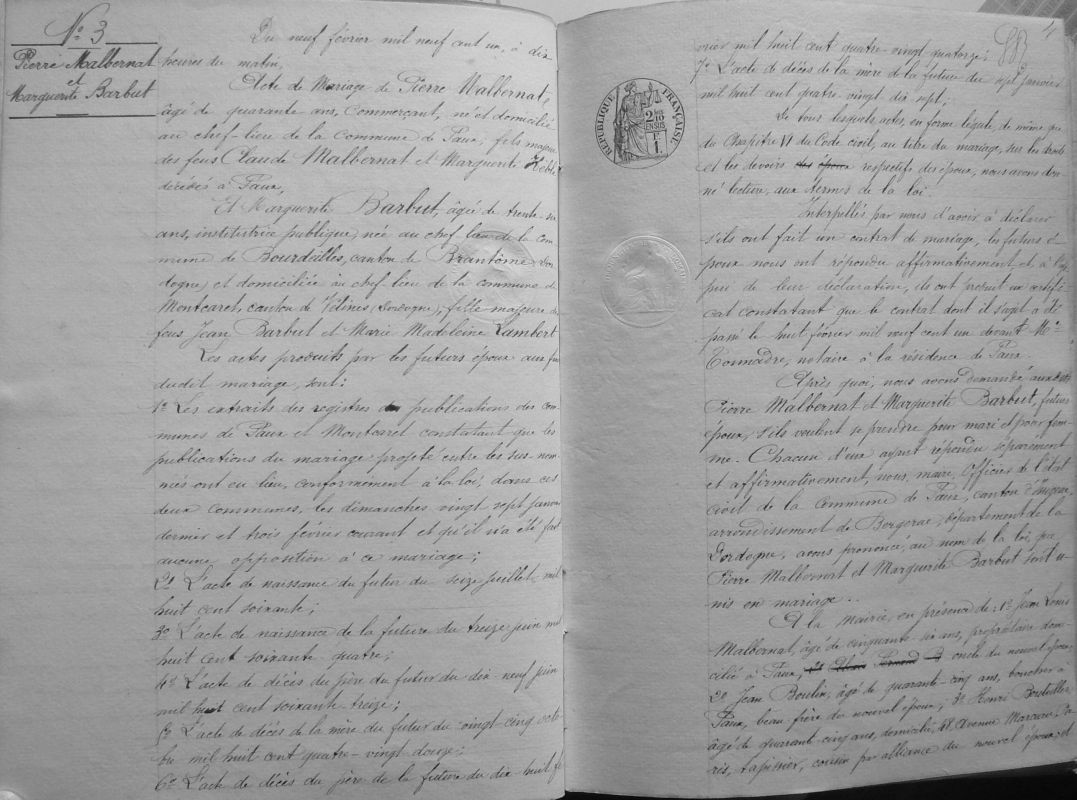 N° 3
Pierre Malbernat
et
Marguerite Barbut
Du neuf février mil neuf cent un, à dix
heures du matin,
Acte de Mariage de Pierre Malbernat,
âgé de quarante ans, Commerçant, né et domicilié
au chef-lieu de la Commune de Faux, fils majeur
des feus Claude Malbernat et Marguerite
décédés à Faux,
Et Marguerite Barbut, âgée de trente-six
ans, institutrice publique, née au chef-lieu de la Com
mune de Bourdeilles, canton de Brantôme, (Dor
dogne) et domiciliée au chef-lieu de la commune de
Montcaret, canton de Vélines (Dordogne), fille majeure des
feus Jean Barbut et Marie Madeleine Lambert
Les actes produits par les futurs époux aux fins
dudit mariage, sont:
1° Les extraits des registres de publications des com
munes de Faux et Montcaret constatant que les
publications du mariage projeté entre les sus-nom
més ont eu lieu, conformément à la loi, dans ces
deux communes, les dimanches vingt sept janvier
dernier et trois février courant et qu'il n'a été fait
aucune opposition à ce mariage;
2° L'acte de naissance du futur du seize juillet mil
huit cent soixante;
3° L'acte de naissance de la future du treize juin mil
huit cent soixante quatre;
4° L'acte de décès du père du futur du dix-neuf juin
mil huit cent soixante-treize;
5° L'acte de décès de la mère du futur du vingt-cinq octo
bre mil huit cent quatre-vingt douze;
6° L'acte de décès du père de la future du dix-huit fé
4
vrier mil huit cent quatre-vingt quatorze;
7° L'acte de décès de la mère de la future du sept janvier
mil huit cent quatre vingt dix sept;
De tous lesquels actes, en forme légale, de même que
du Chapitre VI du Code civil, au titre du mariage, sur les droits
et les devoirs des époux respectifs des époux, nous avons don
né lecture, aux termes de la loi.
Interpellés par nous d'avoir à déclarer
s'ils ont fait un contrat de mariage, les futurs é-
poux nous ont répondu affirmativement et à l'ap
pui de leur déclaration, ils ont produit un certifi
cat constatant que le contrat dont il s'agit a été
passé le huit février mil neuf cent un devant Me
notaire à la résidence de Faux.
Après quoi, nous avons demandé aux dits
Pierre Malbernat et Marguerite Barbut, futurs
époux, s'ils veulent se prendre pour mari et pour fem
me. Chacun d'eux ayant répondu séparément
et affirmativement, nous, maire, Officier de l'état
civil de la Commune de Faux, canton d'Issigeac,
arrondissement de Bergerac, département de la
Dordogne, avons prononcé, au nom de la loi, que
Pierre Malbernat et Marguerite Barbut sont u-
nis en mariage.
A la Mairie, en présence de: 1° Jean Louis
Malbernat, âgé de cinquante-six ans, propriétaire domi
cilié à Faux, oncle du nouvel époux,
2° Jean Boulin, âgé de quarante-cinq ans, boucher à
Faux, beau-frère du nouvel époux, 3° Henri
âgé de quarante-cinq ans, domicilié, 48 Avenue Marceau, Pa
ris, tapissier, cousin par alliance du nouvel époux, et
RÉPUBLIQUE FRANÇAISE
2/10 EN SUS
1 F.